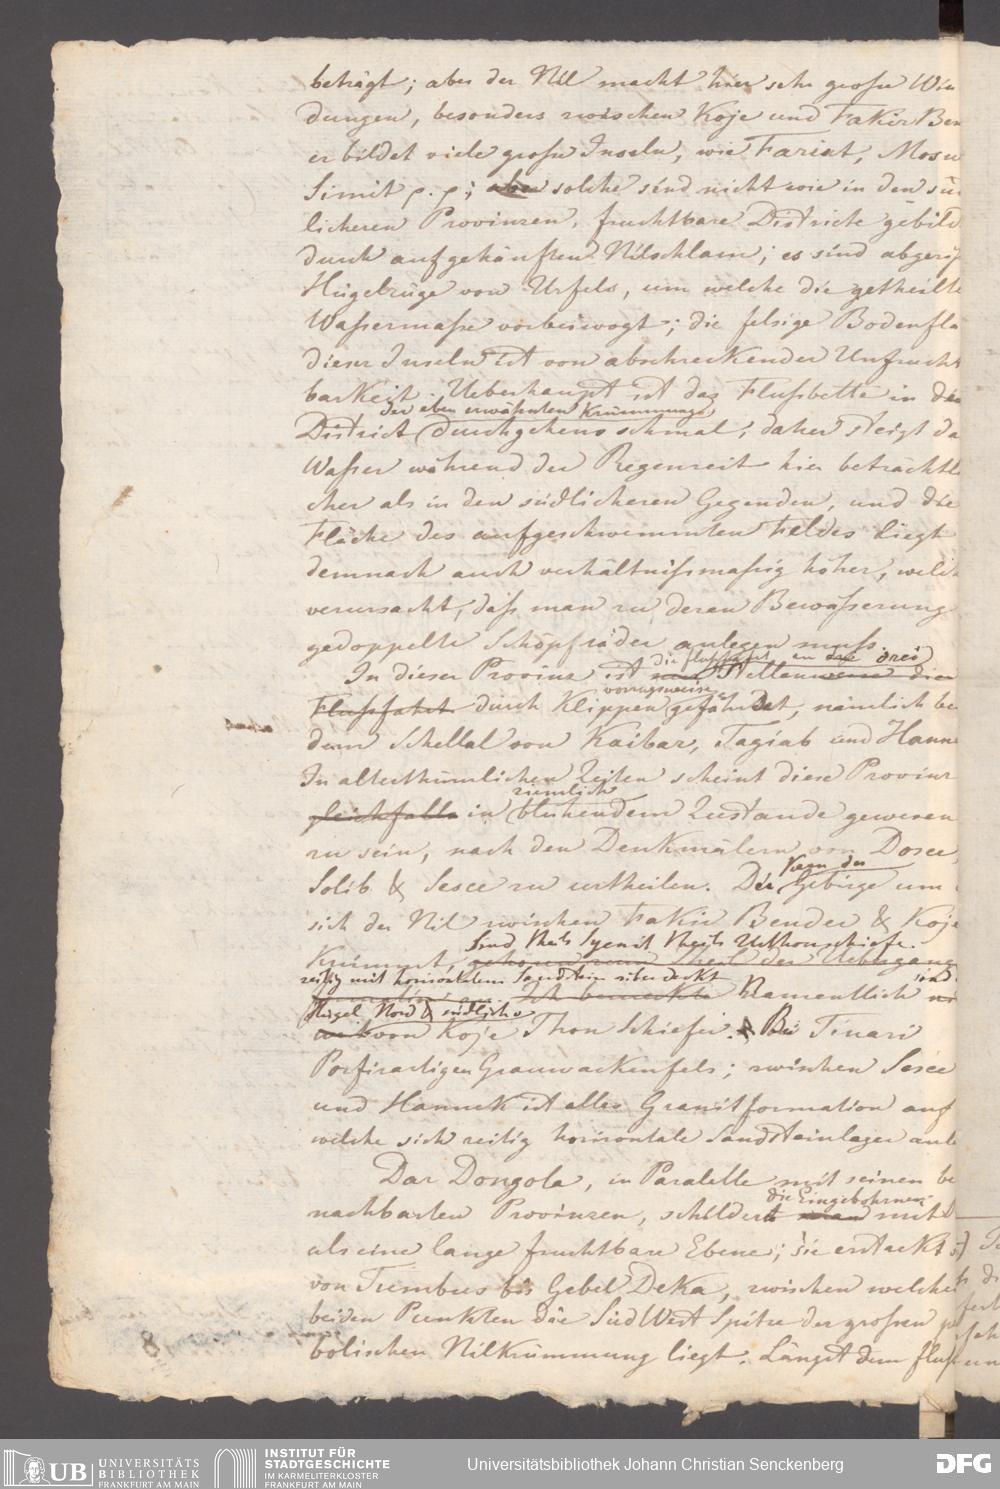 beträgt; aber der Nil macht hier sehr große Win
dungen, besonders zwischen Koje und Fakir Ben
er bildet viele große Inseln, wie Fariat, Mosu
Simit p. p; aber solche sind nicht wie in den süd
licheren Provinzen, fruchtbare Districte gebild
durch aufgehäuften Nilschlam; es sind abgeriß
Hügelzüge von Urfels, um welche die getheilte
Waßermaße vorbeiwogt; die felsige Bodenflä
dieser Inseln ist von abschreckender Unfrucht
barkeit. Ueberhaupt ist das Flußbette in die
der eben erwähnten Krümmung
District durchgehens schmal, daher steigt da
Waßer während der Regenzeit hier beträchtli
cher als in den südlicheren Gegenden, und die
Fläche des aufgeschwemmten Feldes liegt
demnach auch verhältnißmaßig höher, welch
verursacht, daß man zu deren Bewäßerung
gedoppelte Schöpfräder anlegen muß.
die flußfahrt an drei
In dieser Provinz ist Stellenweise die
vorzugsweise
Flußfahrt durch Klippen gefährdet, nämlich be
dem Schellal von Kaibar, Tagiab und Hann
In alterthümlichen Zeiten scheint diese Provinz
ziemlich
gleichfalls in blühendem Zustande gewesen
zu sein, nach den Denkmälern von Dosce,
Solib & Sesce zu urtheilen. Der Gebirge um
Kern der
sich der Nil zwischen Fakir Bender & Koje
sind theils Syenit theils Urthonschiefer.
Krümmt, der Uebergang
zeitig mit horizontalem Sandstein überdeckt
Ich bemerkte Namentlich sind
Hügel Nord & südlich
von Koje Thon Schiefer. & Bei Tinari
Porfirartigen Grauwackenfels; zwischen Sesce
und Hannek ist alles Granitformation auf
welche sich zeitig horizontale Sandsteinlager anle
Dar Dongola, in Paralelle mit seinen be
die Eingebohrnen
nachbarten Provinzen, schildert man mit
als eine lange fruchtbare Ebene; sie erstreckt s
von Tumbus bis Gebel Deka, zwischen welchen
beiden Punkten die Süd West Spitze der großen
bolischen Nilkrümmung liegt. Längst dem fluß
8
UB UNIVERSITÄTS BIBLIOTHEK FRANKFURT AM MAIN
INSTITUT FÜR STADTGESCHICHTE IM KARMELITERKLOSTER FRANKFURT AM MAIN
Universitätsbibliothek Johann Christian Senckenberg
DFG